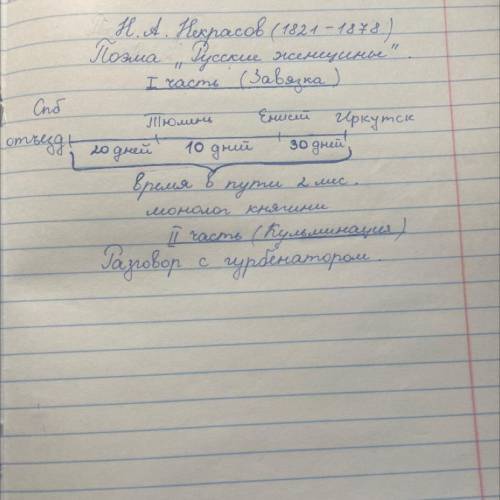 Н. А. Некрасов (1821-1878)
Поэма „Русские женщины".
I часть (Завязка)
Спб Тюмень Енисей Иркутск
отъезд 20 дней 10 дней 30 дней
время в пути 2 мес.
монолог княгини
II часть (Кульминация)
Разговор с гурбенатором.